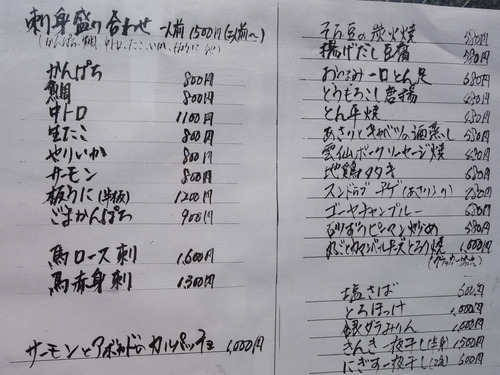 刺身盛り合わせ 一人前 1500円(二人前〜)
かんぱち 800円
鯛 800円
中トロ 1100円
生たこ 800円
やりいか 800円
サーモン 800円
板うに(半板) 1200円
ごまかんぱち 900円
馬ロース刺 1,600円
馬赤身刺 1,300円
サーモンとアボカドのカルパッチョ 1,000円
そら豆の炭火焼 580円
揚げだし豆腐
一口とん足 680円
とうもろこし唐揚 680円
とん平焼 680円
あさりとキャベツの酒蒸し 680円
雲仙ポークソーセージ焼 680円
地鶏タタキ 680円
スンドゥブチゲ(あさり入り) 780円
ゴーヤチャンプルー 680円
ピーマン炒め 580円
丸ごとカマンベールチーズとろり焼 1,000円
塩さば
とろほっけ 1,000円
銀ダラみりん 1,000円
きんき一夜干し(半身) 1,500円
にぎす一夜干し(2尾) 600円